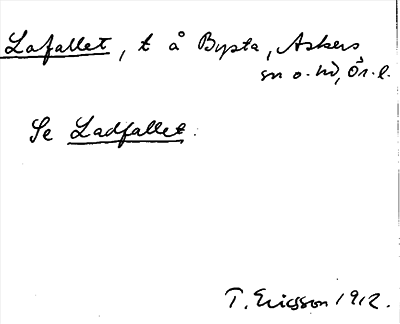 Lafallet, t å Bysta, Askers
sn o. hd, Ör. l.
Se Ladfallet.
T. Ericsson 1912.